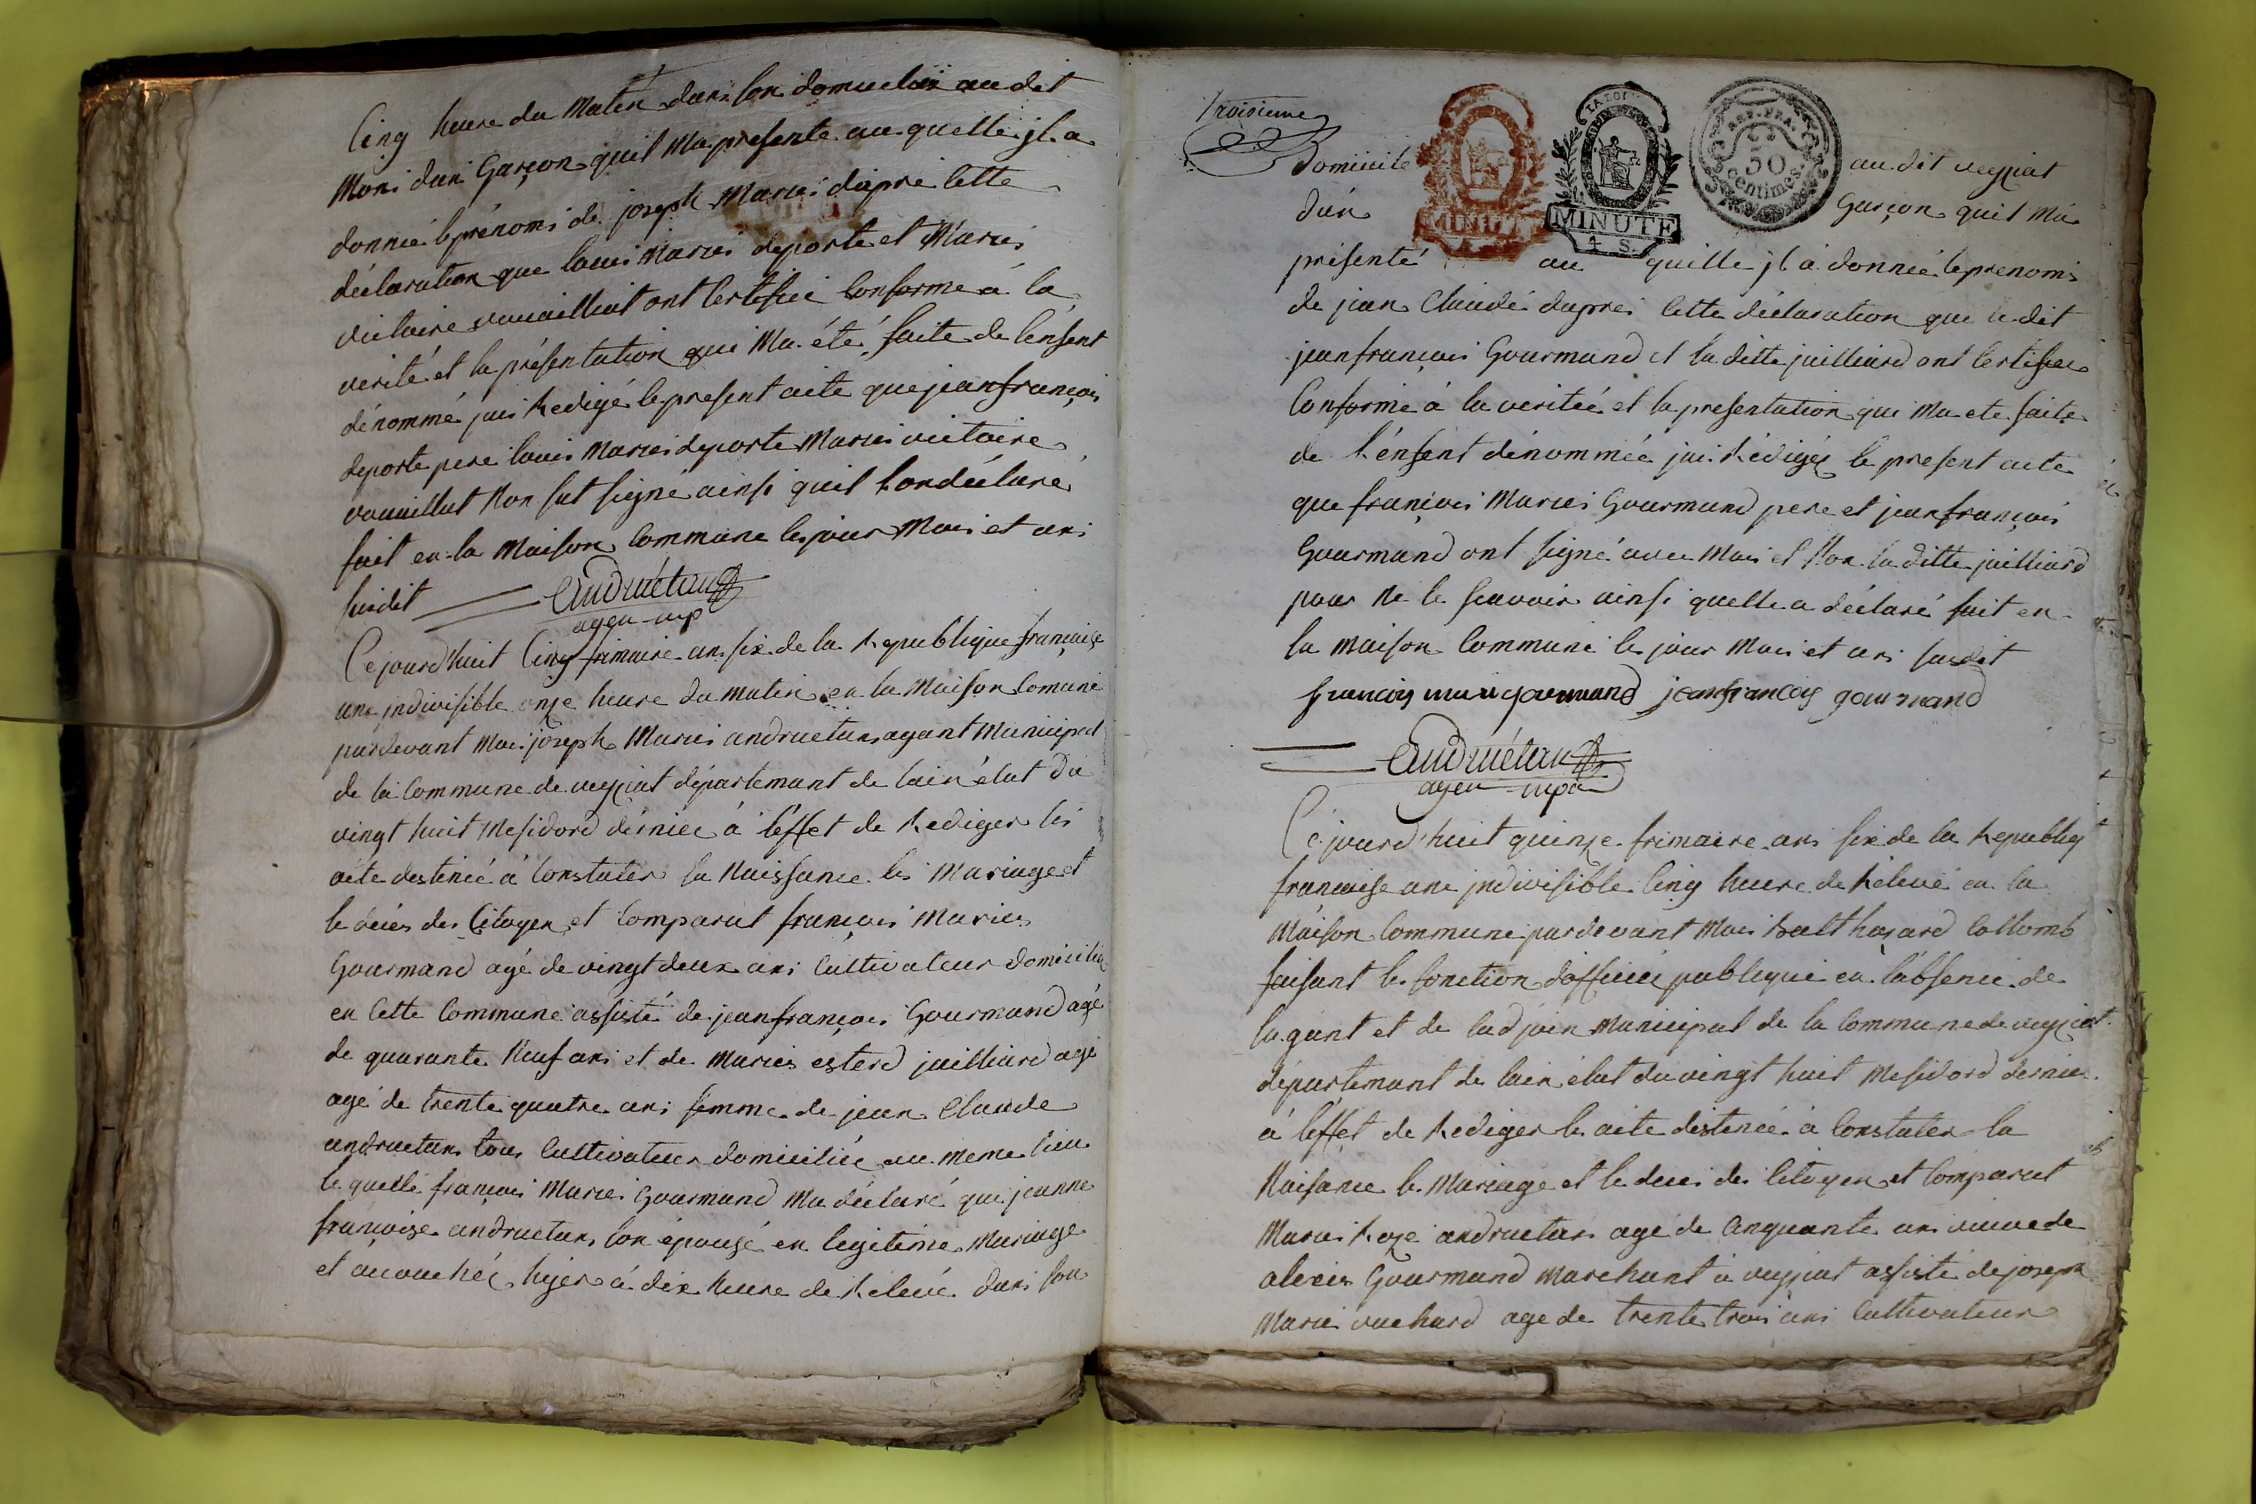 Cinq heure du Matin dans son domicilai au dit
Moni dun Garçon quil Ma presente au quelle jl a
donnée le prénoms de joseph Maries dapre cette
déclaration que louis Maries deporte et Maries
victoire vouailliat ont Certifiée Conforme á la
verité et la présentation qui Ma été faite de lenfent
dénommé jais Redigé le present acte que jean françois
deporte pere louis Maries deporte Maries victoire
vouaillat Non sut signé ainsi quil lon déclaré
fait en la Maison Commune les jour Mois et ans
susdit
Andruétan
agen mp
Ce jourd'huit Cinq frimaire an six de la Republique française
une jndivisible onze heure du matin en la Maison Comune
pardevant Moi joseph Maries andruetan agant Municipal
de la Commune de veyziat département de lain élut du
vingt huit Mesidord dérniée á l'effet de Rediger les
acte destinée á Constater la Naissance les Mariage et
le décés des Citoyen et Comparut françois Maries
Gourmand agé de vingt deux ans Cultivateur domiciliée
en Cette Commune assisté de jean françois Gourmand agé
de quarante Neuf ans et de Maries esterd juilliard agé
agé de trente quatre ans femme de jean Claude
andruetan tous Cultivateur domiciliée au meme lieu
le quelle françois Maries Gourmand Ma déclaré que jeanne
françoise andruetan son épouse en legitime Mariage
et accouchée hyer á dix heure de Relevé dans son
troisieme
Domicile au dit veyziat
dun Garçon quil Ma
présenté au quelle jl a donnée le prenoms
de jean Claude dapres Cette déclaration que le dit
jean françois Gourmand et la ditte juilliard ont Certifiée
Conforme á la veritée et la presentation qui Ma ete faite
de l'énfent dénommée jai Rédigés le present acte
que françois Maries Gourmand pere et jean françois
Gourmand ont signé avec Mois et Non la ditte juilliard
pour Ne le scavoir ainsi quelle a déclaré fait en
la Maison Commune les jour Mois et ans susdit
francois marie gourmand jean francois gourmand
Andruétan
agen mpa
Ce jourd'huit quinze frimaire ans six de la Republiq
françaisse une jndivisible Cinq heure de Relevé en la
Maison Commune pardevant Mois Balthazard Collomb
faisant les fonction dofficiée publique en l'absence de
lagant et de ladjoin Municipal de la Commune de veyziat
département de lain élut du vingt huit Mesidord dernier
á l'effet de Rediger les acte destinée á Constater la
Naisance les Mariage et le deces des Citoyen et Comparut
Maries Roze andructan age de Cinquante ans veuve de
alexis Gourmand Marchant á veyziat assisté de joseph
Marie vuchard age de trente trois ans Cultivateur
LA LOI
MINUTE
MINUTE
4 S.
REP. FRA.
50
centimes.